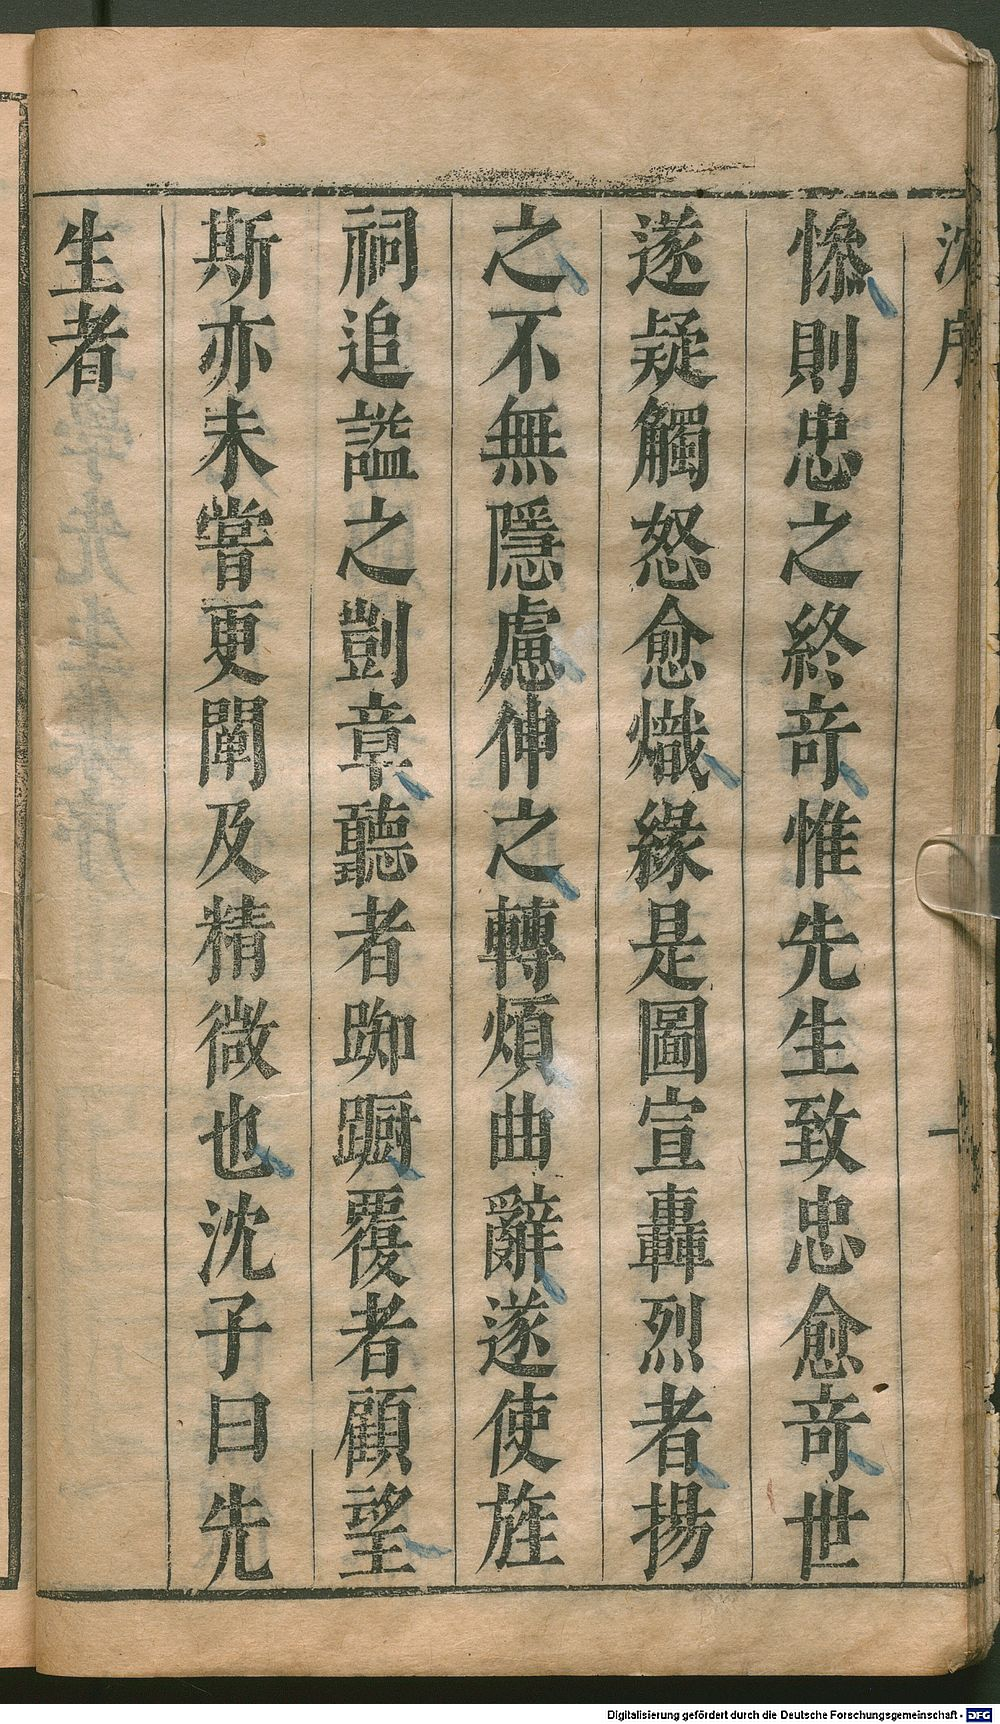 沈序
一
慘則忠之終竒惟先生致忠愈竒世
遂疑觸怒愈熾緣是圖宣轟烈者揚
之不無隱慮伸之轉煩曲辭遂使旌
祠追謚之剴章聽者踟躕覆者顧望
斯亦未嘗更闡及精微也沈子曰先
生者
Digitalisierung gefördert durch die Deutsche Forschungsgemeinschaft - DFG